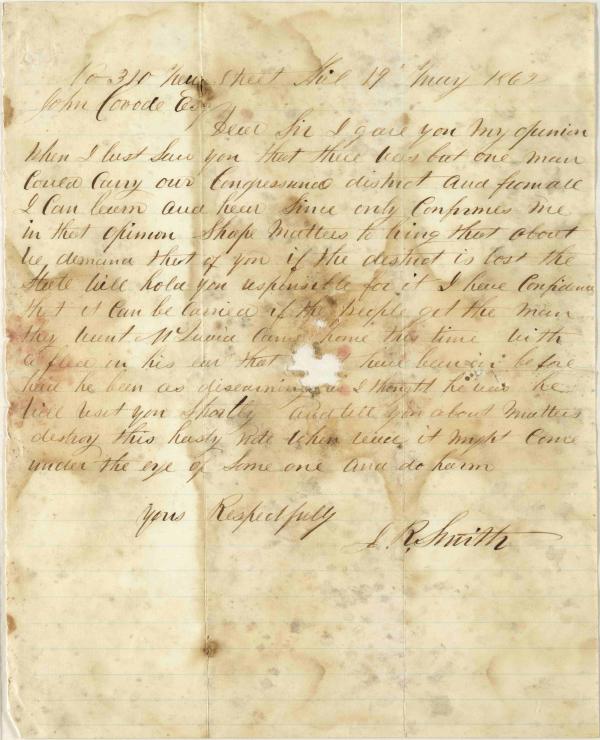 No 310 New Street Phil 19 May 1862
John Covode Esq
Dear Sir I gave you my opinion
When I last Saw you that there was but one man
Could Carry our Congressional district and from all
I Can learn and hear Since only Confirmes me
in that opinion Shape Matters to bring that about
We demand that of you if the district is lost the
State will hold you responsible for it I have Confidence
that it Can be Carried if the people get the man
they want Mc Came home this time with
a flea in his ear that have been in before
had he been as discerning as I thought he was he
will visit you Shortly and tell you about Matters
destroy this hasty note when read it might Come
under the eye of Some one and do harm
yours Respectfully
R. Smith